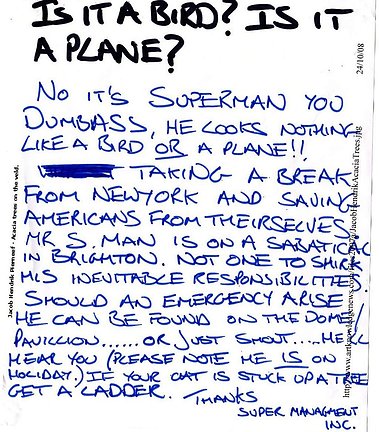 IS IT A BIRD? IS IT
A PLANE?
NO IT'S SUPERMAN YOU
DUMBASS, HE LOOKS NOTHING
LIKE A BIRD OR A PLANE!!
TAKING A BREAK
FROM NEWYORK AND SAVING
AMERICANS FROM THEIRSELVES
MR S. MAN IS ON A SABATICAL
IN BRIGHTON. NOT ONE TO SHIRK
HIS INEVITABLE RESPONSIBILITHES
SHOULD AN EMERGENCY ARISE
HE CAN BE FOUND ON THE DOME/
PAVILLION......OR JUST SHOUT....HE'LL
HEAR YOU (PLEASE NOTE HE IS ON
HOLIDAY.) IF YOUR CAT IS STUCK UP A TREE
GET A LADDER. THANKS
SUPER MANAGMENT
INC.
Jacob Hendrik Pierneef - Acacia trees on the veld.
24/10/08